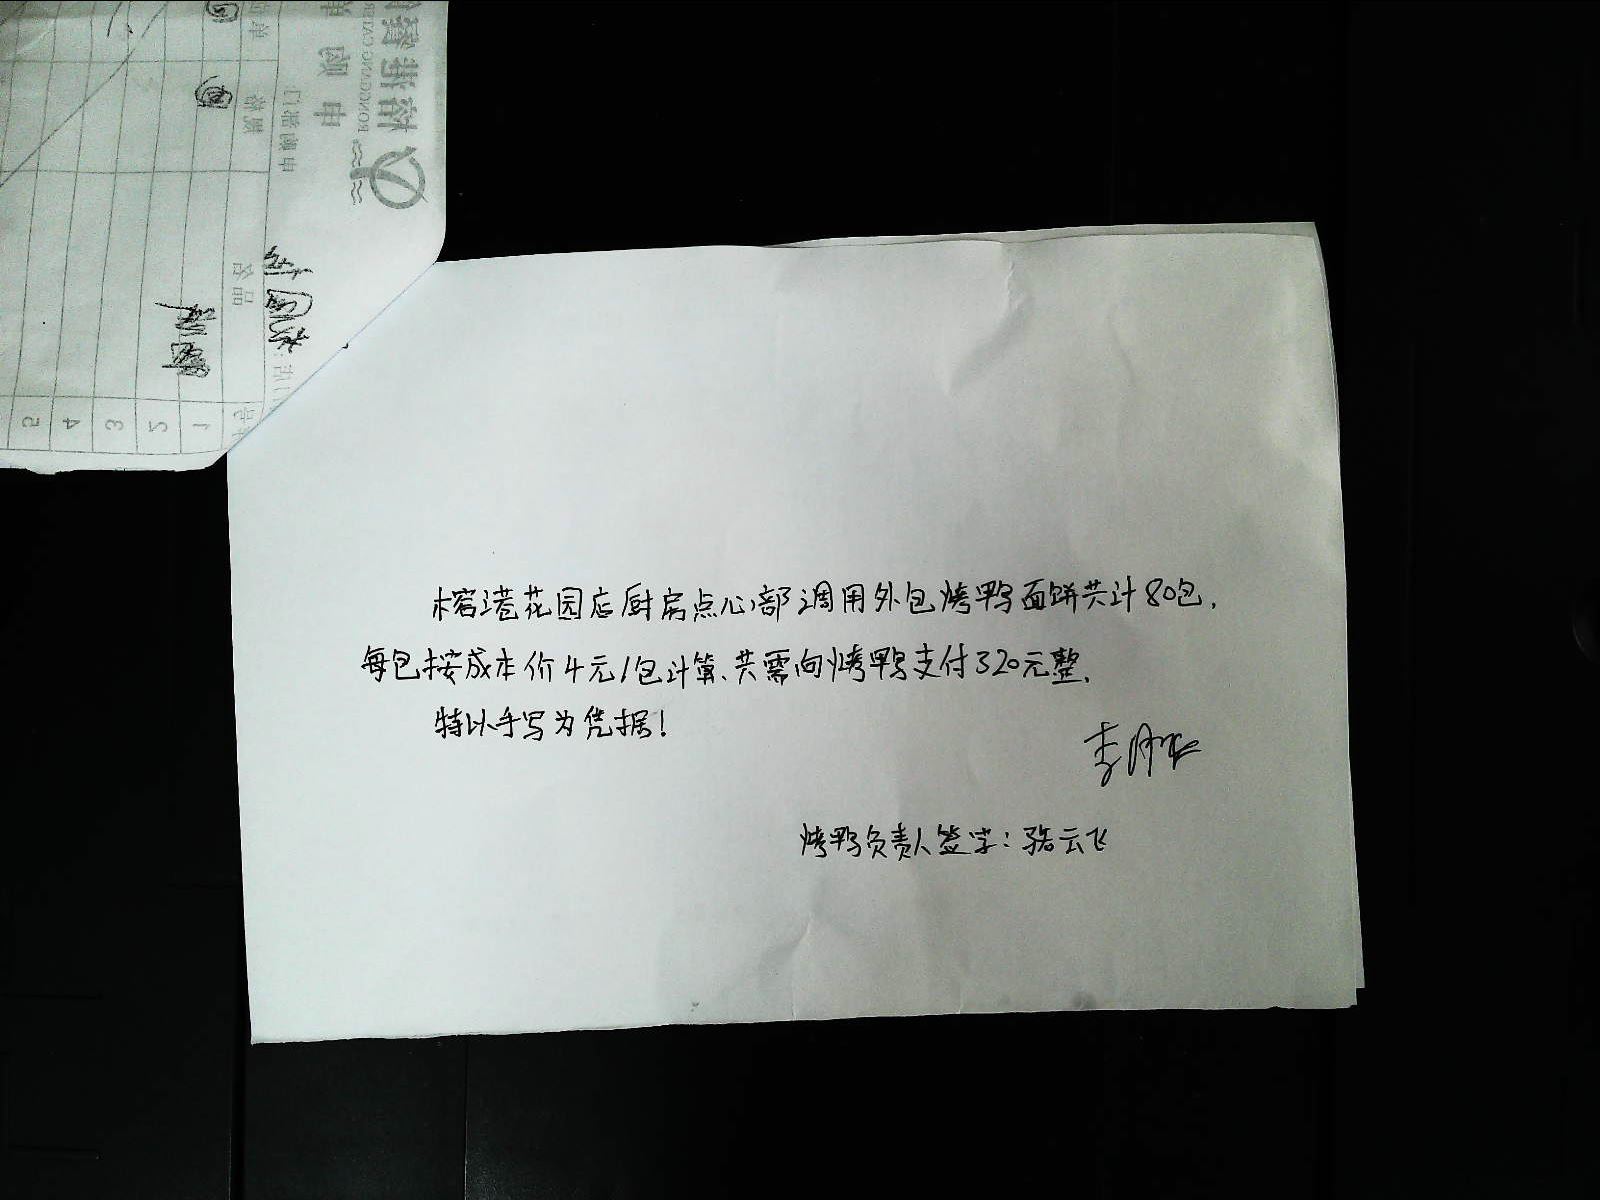 榕港花园店厨房点心部调用外包烤鸭面饼共计80包,
每包按成本价4元/包计算、共需向烤鸭支付320元整.
特以手写为凭据!
烤鸭负责人签字:骆云飞
RONGGANG CATER
申购单
品名
1
2
3
4
5